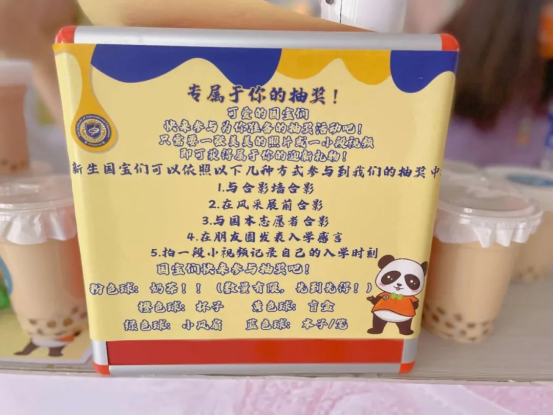 专属于你的抽奖！
可爱的国宝们
快来参与为你准备的抽奖活动吧！
只需要一张美美的照片或一小段视频
即可获得属于你的迎新礼物！
新生国宝们可以依照以下几种方式参与到我们的抽奖中
1.与合影墙合影
2.在风采展前合影
3.与国本志愿者合影
4.在朋友圈发表入学感言
5.拍一段小视频记录自己的入学时刻
国宝们快来参与抽奖吧！
粉色球：奶茶！！（数量有限，先到先得！）
橙色球：杯子 黄色球：盲盒
绿色球：小风扇 蓝色球：本子/笔